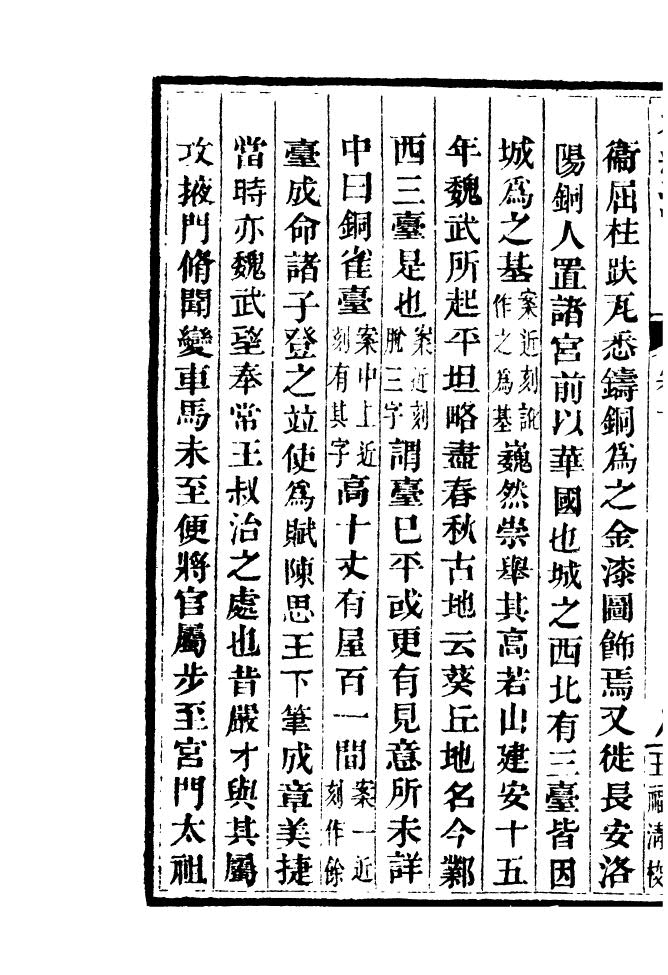 衞屈柱趺瓦悉鑄銅爲之金漆圖飾焉又徙長安洛
陽銅人置諸宮前以華國也城之西北有三臺皆因
城爲之基案近刻說作之爲基巍然崇舉其高若山建安十五
年魏武所起平坦略盡春秋古地云葵丘地名今鄴
西三臺是也案近刻脫三字謂臺巳平或更有見意所未詳
中曰銅雀臺案中上近刻有其字高十丈有屋百一間案一近刻作餘
臺成命諸子登之竝使爲賦陳思王下筆成章美捷
當時亦魏武望奉常王叔治之處也昔嚴才與其屬
攻掖門脩聞變車馬未至便將官屬步至宮門太祖